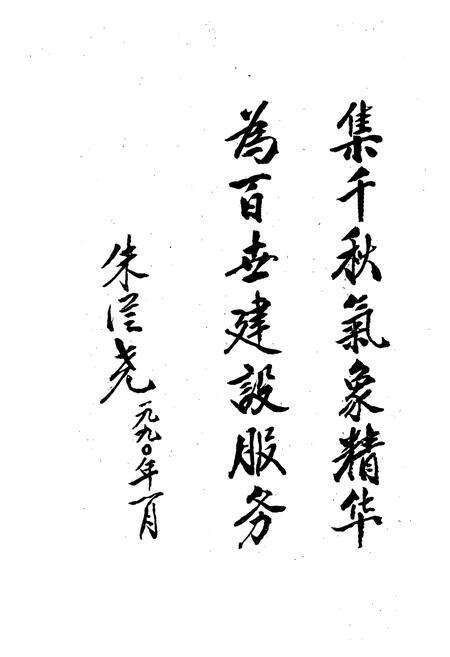 集千秋氣象精华
為百世建設服务
朱尧一九九〇年一月